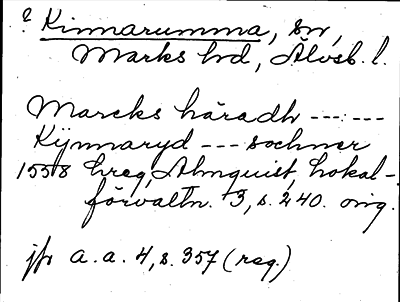 ? Kinnarumma, sn,
Marks hd, Älvsb. l.
Marcks häradh --- --- ---
Kijnnaryd --- sochner
1558 hreg, Almquist, Lokal-
förvaltn. 3, s. 240. orig.
jfr a. a. 4, s. 357 (reg.)